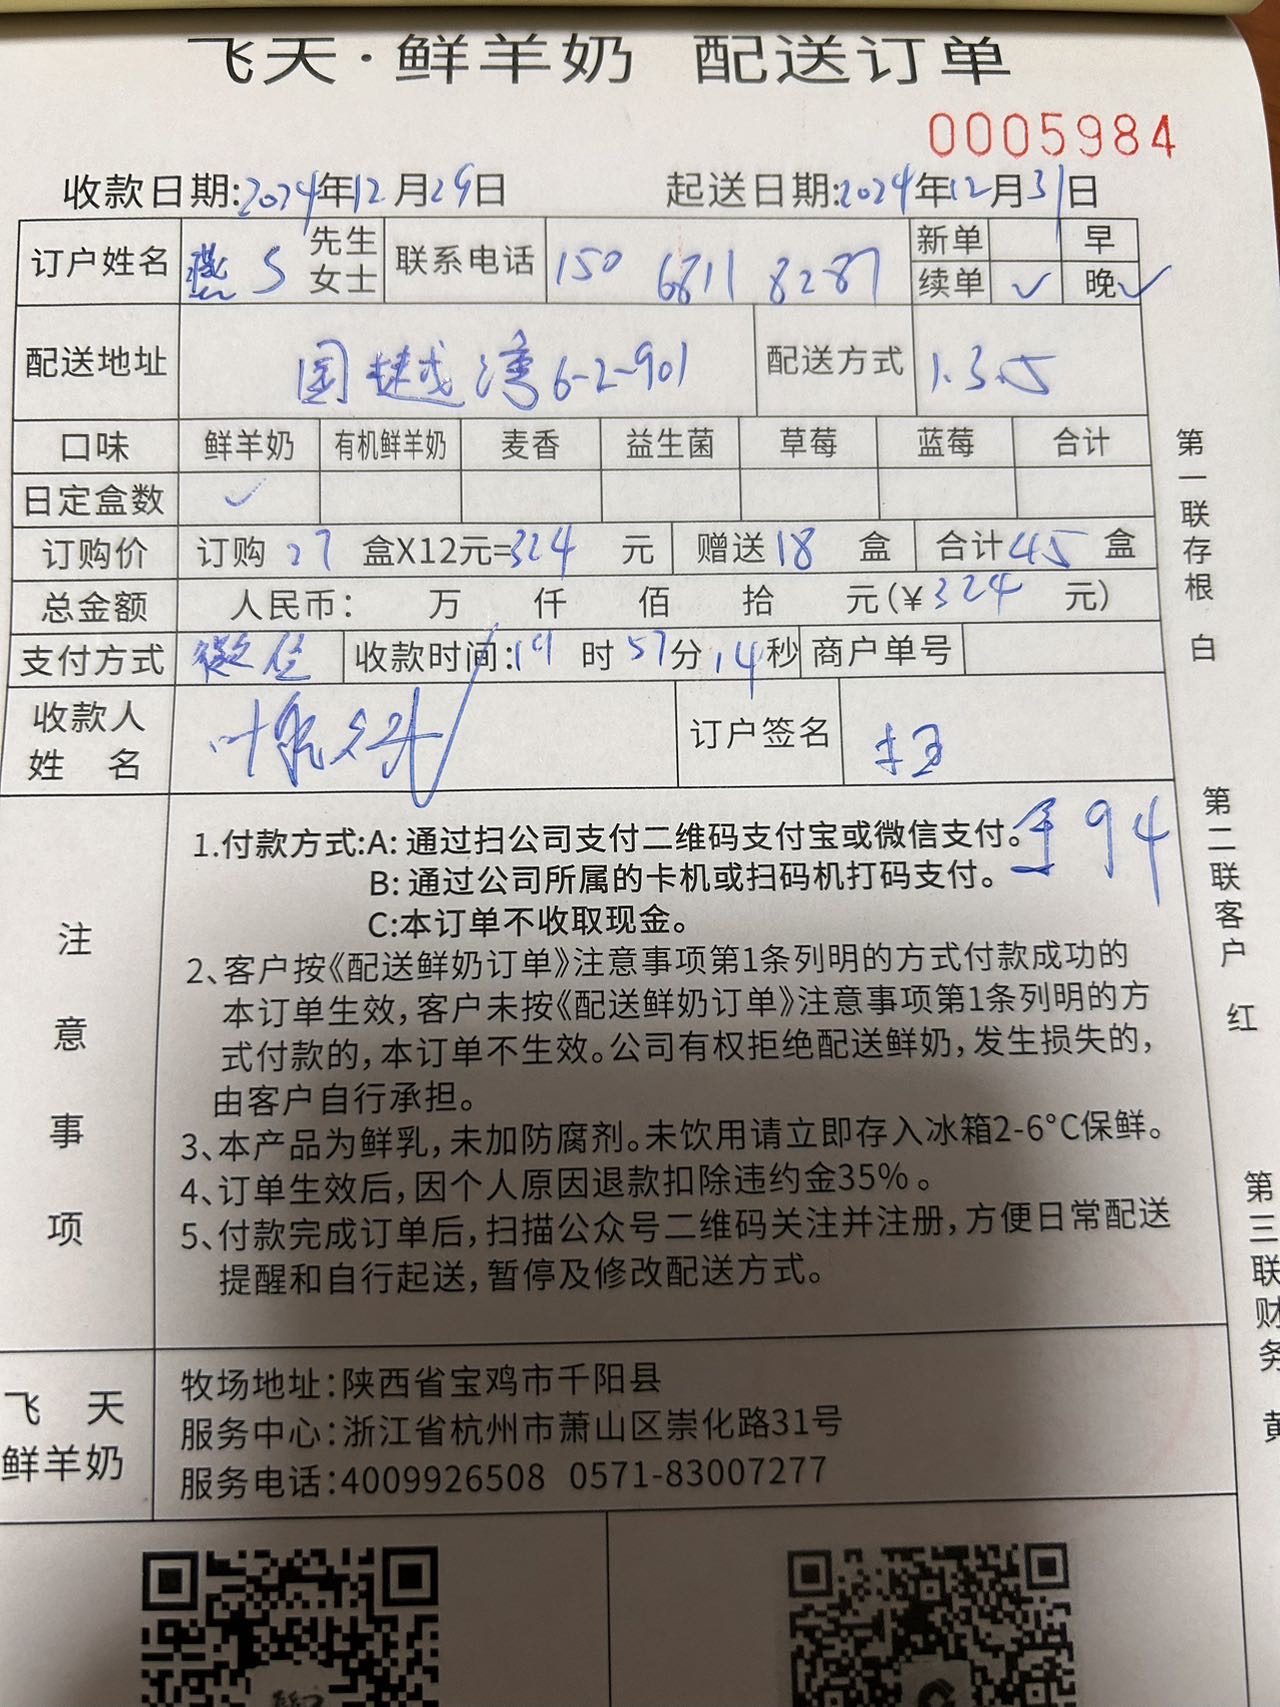 飞天·鲜羊奶 配送订单
0005984
收款日期:2024年12月29日 起送日期:2024年12月31日
订户姓名 燕 S 先生 女士 联系电话 150 6811 8287 新单 早
续单 ✓ 晚✓
配送地址 国樾湾6-2-901 配送方式 1.3.5
口味 鲜羊奶 有机鲜羊奶 麦香 益生菌 草莓 蓝莓 合计
日定盒数 ✓
订购价 订购 27 盒X12元=324 元 赠送18 盒 合计45盒
总金额 人民币: 万 仟 佰 拾 元(¥324 元)
支付方式 微信 收款时间:19时57分14秒 商户单号
收款人
姓 名 订户签名
注意事项
1.付款方式:A:通过扫公司支付二维码支付宝或微信支付。 94
B:通过公司所属的卡机或扫码机打码支付。
C:本订单不收取现金。
2、客户按《配送鲜奶订单》注意事项第1条列明的方式付款成功的
本订单生效,客户未按《配送鲜奶订单》注意事项第1条列明的方
式付款的,本订单不生效。公司有权拒绝配送鲜奶,发生损失的,
由客户自行承担。
3、本产品为鲜乳,未加防腐剂。未饮用请立即存入冰箱2-6°C保鲜。
4、订单生效后,因个人原因退款扣除违约金35%。
5、付款完成订单后,扫描公众号二维码关注并注册,方便日常配送
提醒和自行起送,暂停及修改配送方式。
飞 天
鲜羊奶
牧场地址:陕西省宝鸡市千阳县
服务中心:浙江省杭州市萧山区崇化路31号
服务电话:4009926508 0571-83007277
第一联存根 白
第二联客户 红
第三联财务 黄